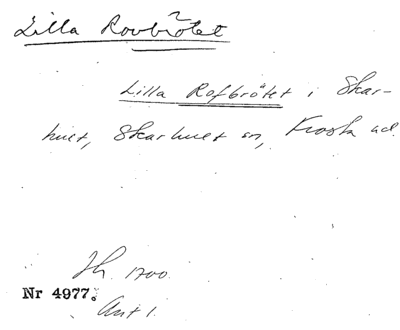 Lilla Rovbrötet
?
Lilla Rofbrötet i Skar-
hult, Skarhult sn, Frosta hd.
Jb. 1700
Nr 4977.
Ant 1.